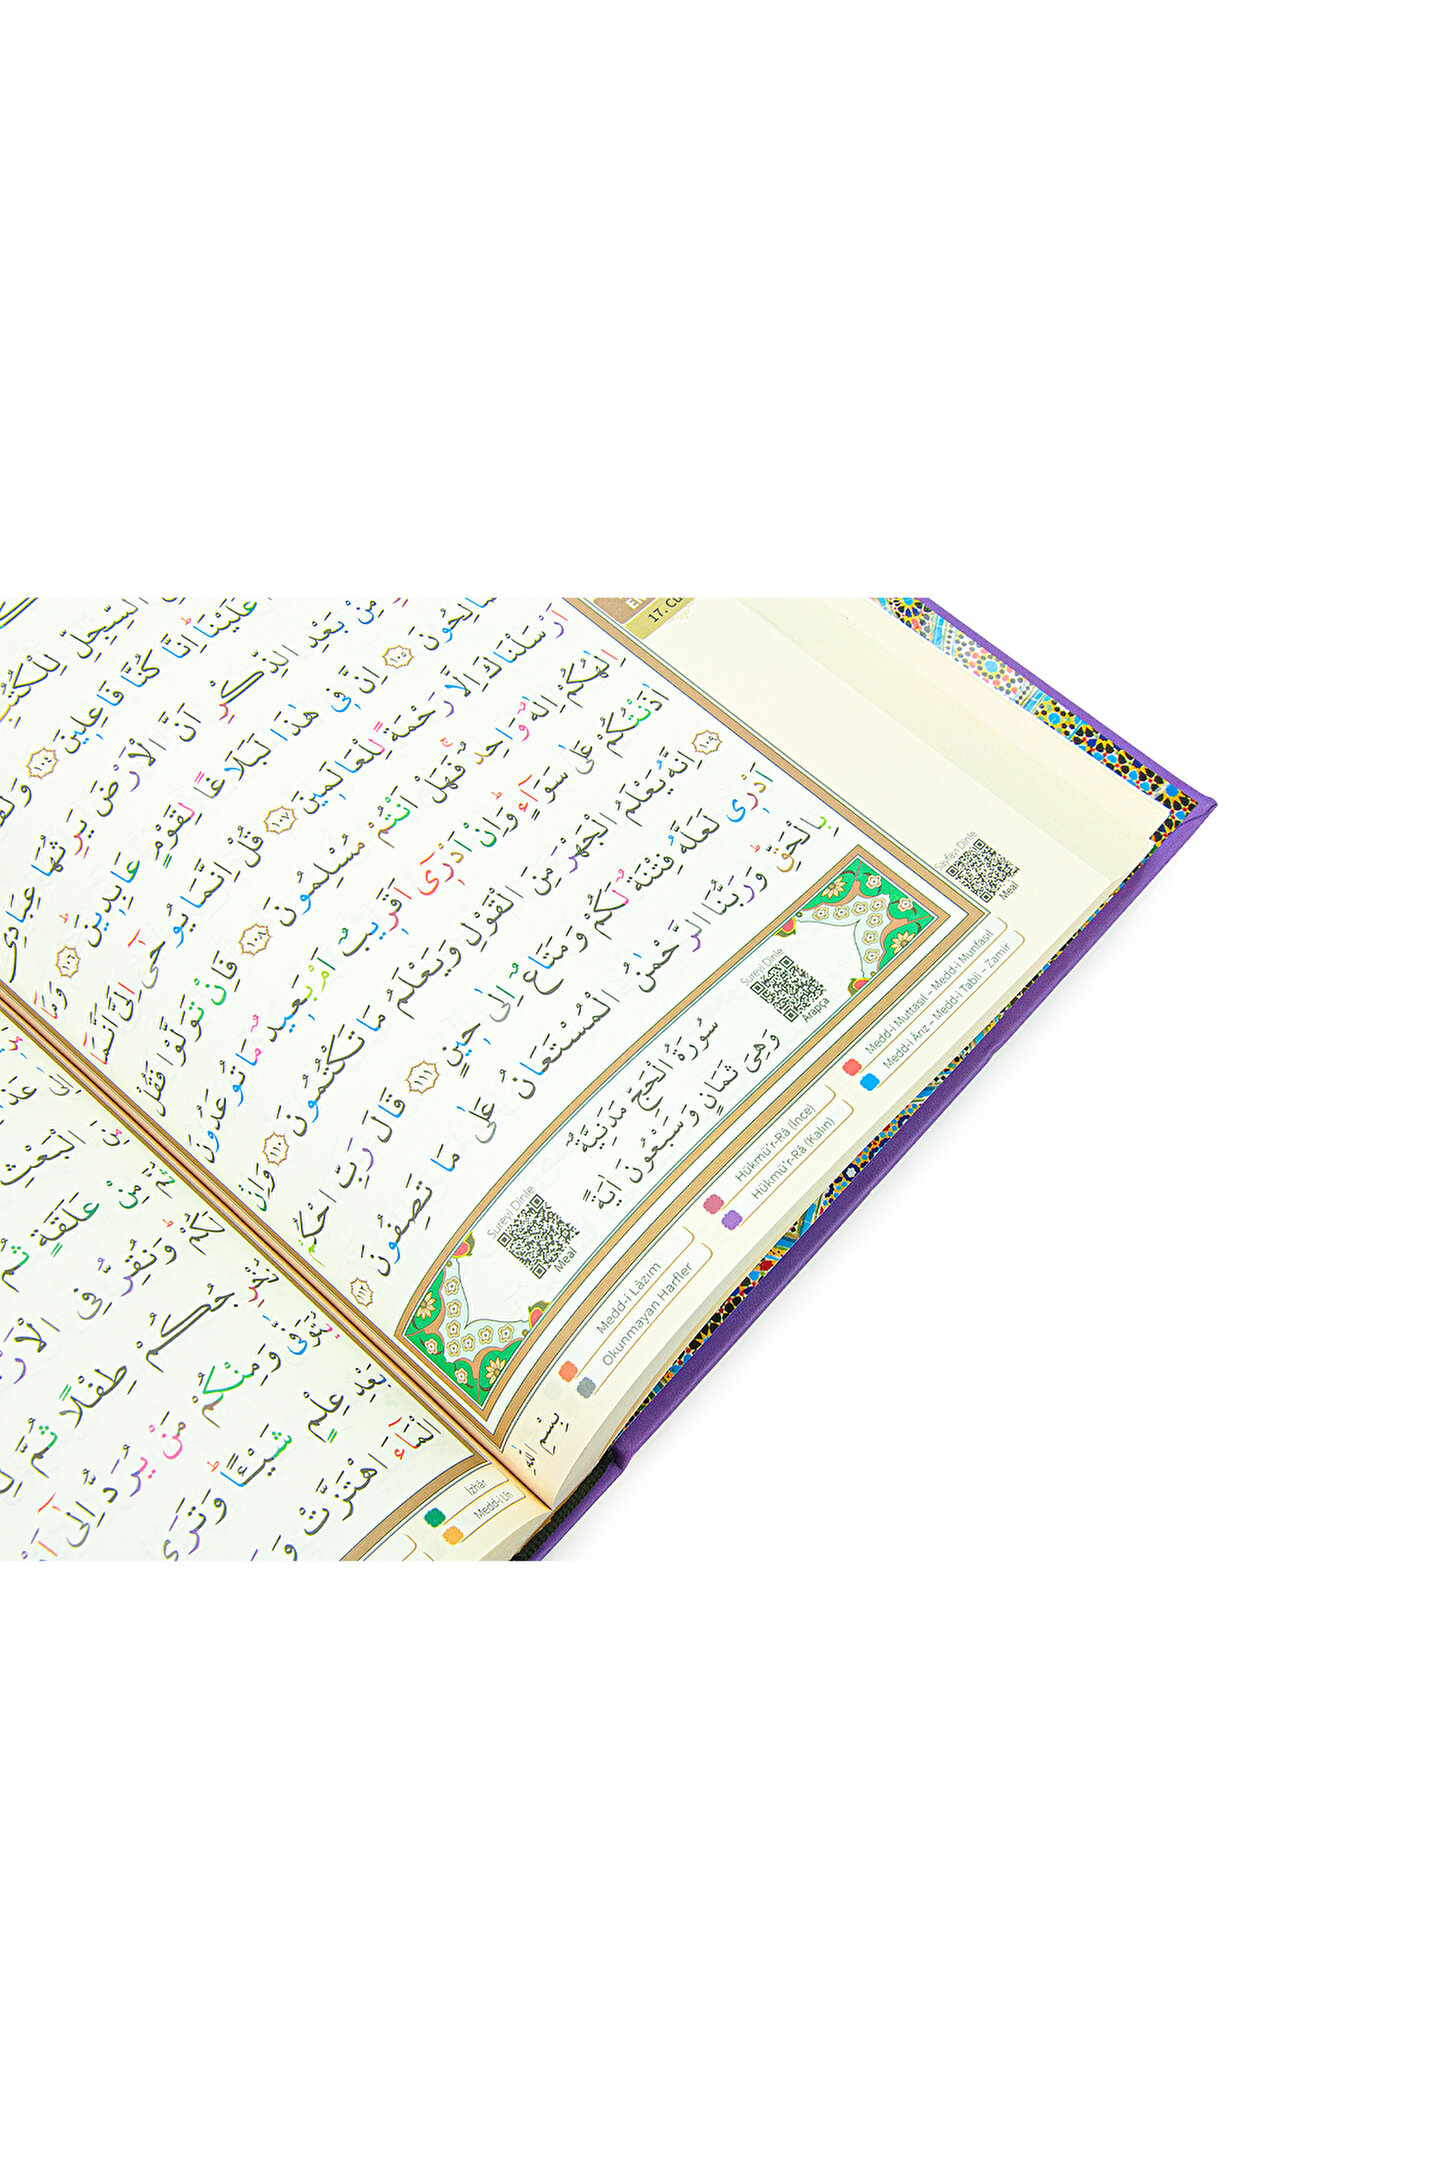 17. Cü
السِّجِلِّ لِلْكُتُبِ
عَلَيْنَا اِنَّا كُنَّا فَاعِلِينَ ١٠٤ وَلَقَدْ
مِنْ بَعْدِ الذِّكْرِ اَنَّ الْاَرْضَ يَرِثُهَا عِبَادِيَ
الصَّالِحُونَ ١٠٥ اِنَّ فِي هٰذَا لَبَلَاغًا لِقَوْمٍ عَابِدِينَ ١٠٦ وَمَٓا
اَرْسَلْنَاكَ اِلَّا رَحْمَةً لِلْعَالَمِينَ ١٠٧ قُلْ اِنَّمَا يُوحٰٓى اِلَيَّ اَنَّمَٓا
اِلٰهُكُمْ اِلٰهٌ وَاحِدٌ فَهَلْ اَنْتُمْ مُسْلِمُونَ ١٠٨ فَاِنْ تَوَلَّوْا فَقُلْ
اٰذَنْتُكُمْ عَلٰى سَوَٓاءٍ وَاِنْ اَدْرِٓي اَقَرِيبٌ اَمْ بَعِيدٌ مَا تُوعَدُونَ
١٠٩ اِنَّهُ يَعْلَمُ الْجَهْرَ مِنَ الْقَوْلِ وَيَعْلَمُ مَا تَكْتُمُونَ ١١٠ وَاِنْ
اَدْرِي لَعَلَّهُ فِتْنَةٌ لَكُمْ وَمَتَاعٌ اِلٰى حِينٍ ١١١ قَالَ رَبِّ احْكُمْ
بِالْحَقِّ وَرَبُّنَا الرَّحْمٰنُ الْمُسْتَعَانُ عَلٰى مَا تَصِفُونَ ١١٢
سُورَةُ الْحَجِّ مَدَنِيَّةٌ
وَهِيَ ثَمَانٍ وَسَبْعُونَ اٰيَةً
Sureyi Dinle
Arapça
Sureyi Dinle
Meal
Sayfayı Dinle
Meal
Medd-i Muttasıl – Medd-i Munfasıl
Medd-i Ârız – Medd-i Tabîi – Zamir
Hükmü'r-Râ (İnce)
Hükmü'r-Râ (Kalın)
Medd-i Lâzım
Okunmayan Harfler
بِسْمِ اللّٰهِ
الْبَعْثِ
مِنْ عَلَقَةٍ ثُمَّ
لَكُمْ وَنُقِرُّ فِي الْاَرْ
نُخْرِجُكُمْ طِفْلًا ثُمَّ
يُتَوَفّٰى وَمِنْكُمْ مَنْ يُرَدُّ اِلٰٓى
بَعْدِ عِلْمٍ شَيْـًٔا وَتَرَى
الْمَٓاءَ اهْتَزَّتْ
İzhâr
Medd-i Lîn